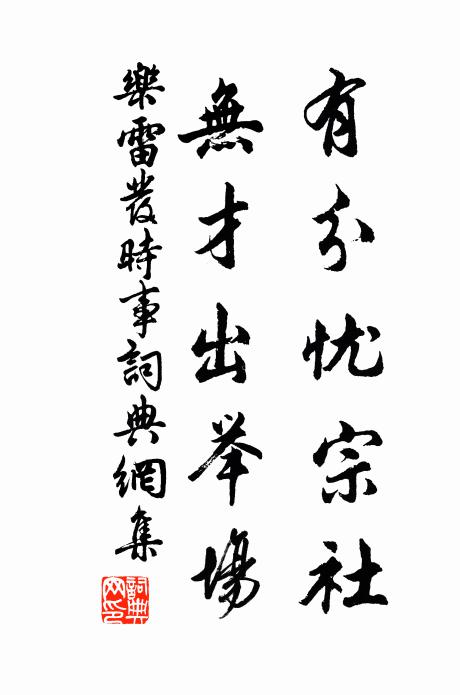 有分忧宗社
無才出举場
樂雷發時事詞典網集
詞典网印